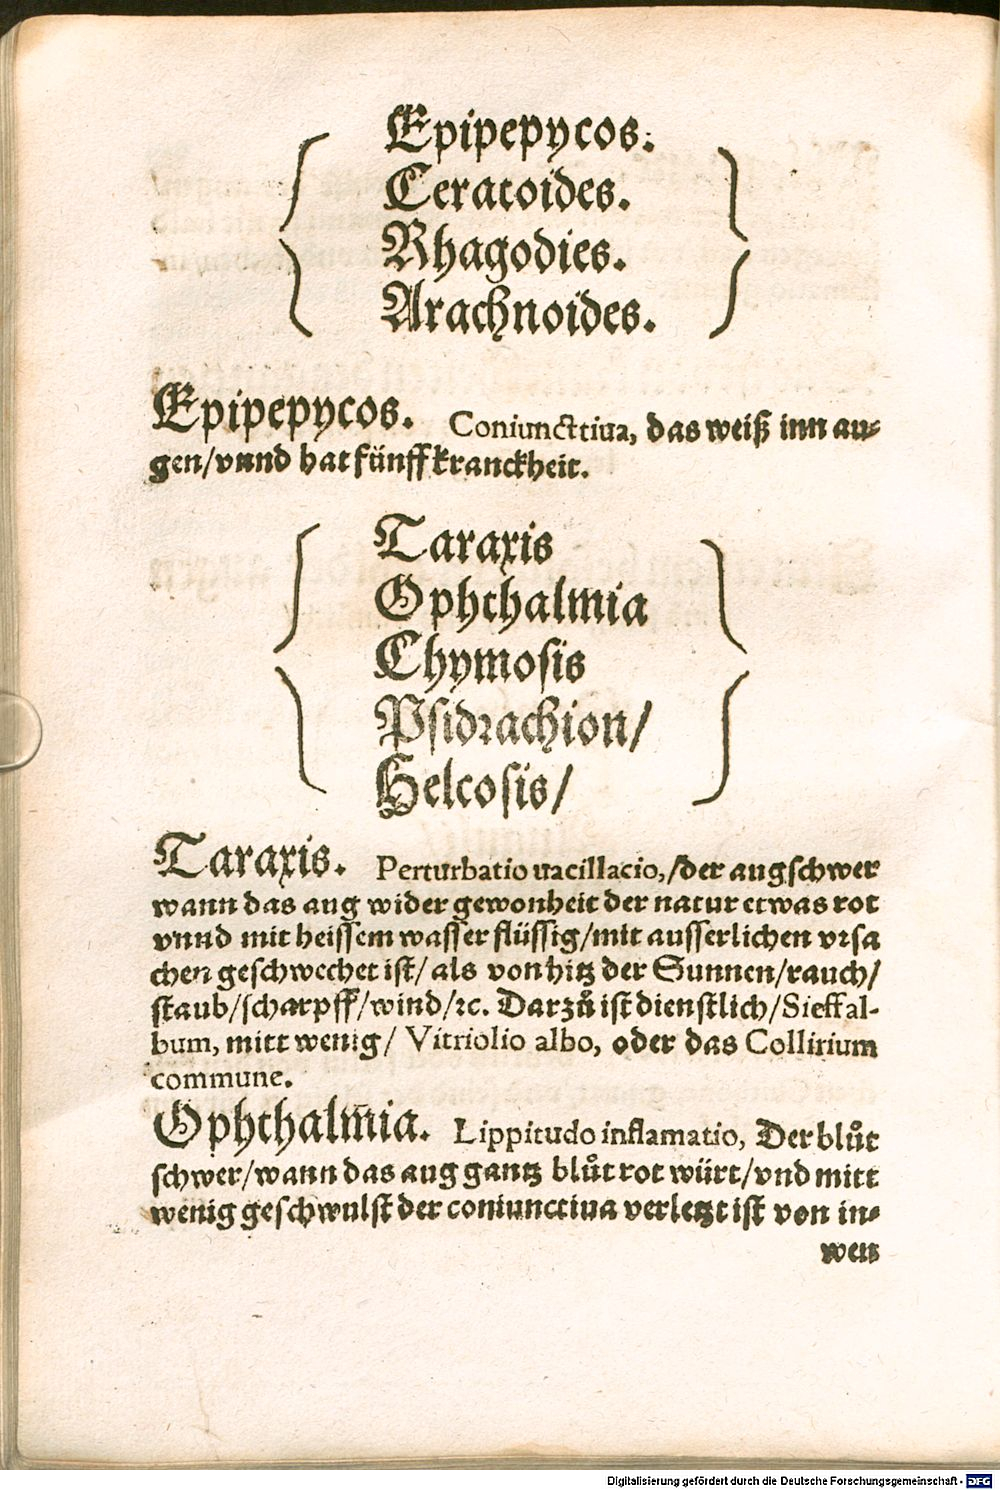 Epipepycos.
Ceratoides.
Rhagodies.
Arachnoides.
Epipepycos. Coniuncttiua, das weiß inn au⸗
gen/vnnd hat fünff kranckheit.
Taraxis
Ophthalmia
Chymosis
Psidrachion/
Helcosis/
Taraxis. Perturbatio uacillacio,/der augschwer
wann das aug wider gewonheit der natur etwas rot
vnnd mit heissem wasser flüssig/mit ausserlichen vrsa
chen geschwechet ist/ als von hitz der Sunnen/rauch/
staub/scharpff/wind/ꝛc. Darzů ist dienstlich/Sieff al-
bum, mitt wenig/ Vitriolio albo, oder das Collirium
commune.
Ophthalm̄ia. Lippitudo inflamatio, Der blůt
schwer/wann das aug gantz blůt rot würt/vnd mitt
wenig geschwulst der coniunctiua verletzt ist von in⸗
wen
Digitalisierung gefördert durch die Deutsche Forschungsgemeinschaft - DFG